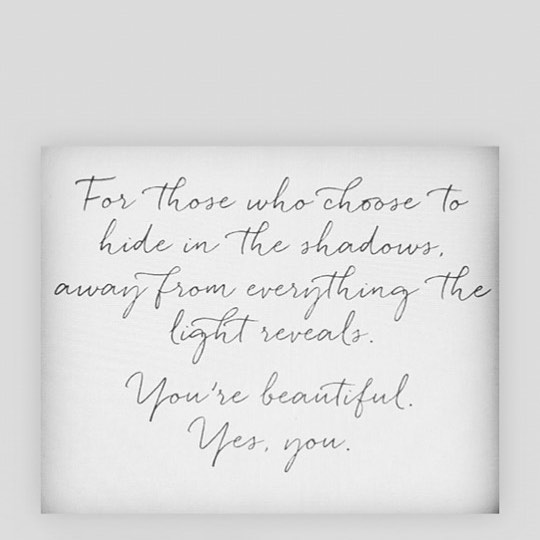 For those who choose to
hide in the shadows,
away from everything the
light reveals.
You're beautiful.
Yes, you.